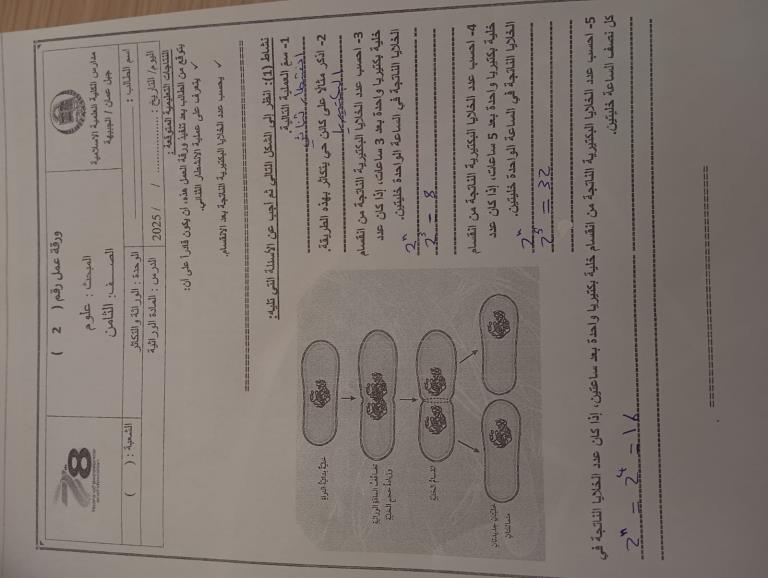 مدارس الكلية العلمية الاسلامية
جبل عمان / الجبيهة
ورقة عمل رقم ( 2 )
المبحث : علوم
الصــف: الثامن
78
اسم الطالب :
الشعبة : ( )
اليوم/ التاريخ : .............. / / 2025
الوحدة : الوراثة والتكاثر
الدرس : المادة الوراثية
النتاجات التعليمية المتوقعة :
يتوقع من الطالب بعد تنفيذ ورقة العمل هذه، ان يكون قادراً على أن:
✓ يتعرف على عملية الانشطار الثنائي.
✓ يحسب عدد الخلايا البكتيرية الناتجة بعد الانقسام.
نشاط (1): انظر إلى الشكل التالي ثم اجب عن الأسئلة التي تليه:
1- سمّ العملية التالية.
2- اذكر مثالاً على كائن حي يتكاثر بهذه الطريقة.
البكتيريا
3- احسب عدد الخلايا البكتيرية الناتجة من انقسام
خلية بكتيريا واحدة بعد 3 ساعات، إذا كان عدد
الخلايا الناتجة في الساعة الواحدة خليتين.
2ⁿ
2³ = 8
4- احسب عدد الخلايا البكتيرية الناتجة من انقسام
خلية بكتيريا واحدة بعد 5 ساعات، إذا كان عدد
الخلايا الناتجة في الساعة الواحدة خليتين.
2ⁿ
2⁵ = 32
خلية بدائية النواة
تضاعفت المادة الوراثية
وزيادة حجم الخلية
انقسام الخلية
خليتان جديدتان
متماثلتان
5- احسب عدد الخلايا البكتيرية الناتجة من انقسام خلية بكتيريا واحدة بعد ساعتين، إذا كان عدد الخلايا الناتجة في
كل نصف الساعة خليتين.
2ⁿ = 2⁴ = 16